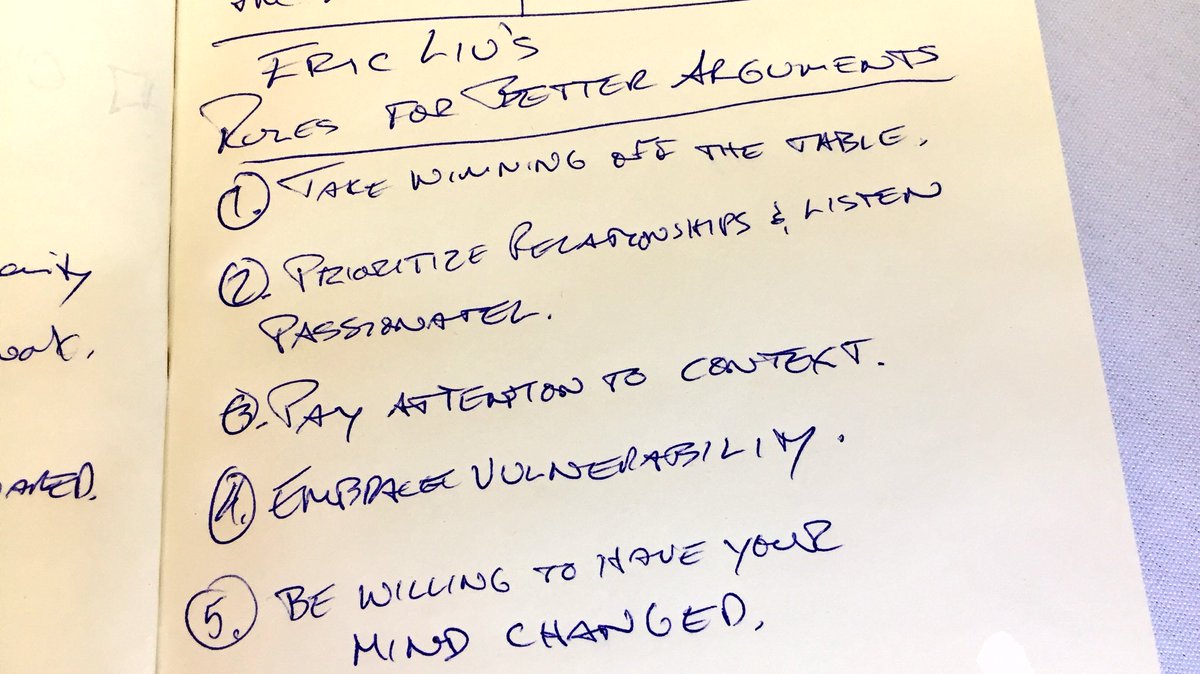 ERIC LIU'S
RULES FOR BETTER ARGUMENTS
1. TAKE WINNING OFF THE TABLE.
2. PRIORITIZE RELATIONSHIPS & LISTEN
PASSIONATEL.
3. PAY ATTENTION TO CONTEXT.
4. EMBRACE VULNERABILITY.
5. BE WILLING TO HAVE YOUR
MIND CHANGED.